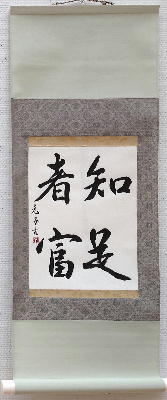 知足
者富